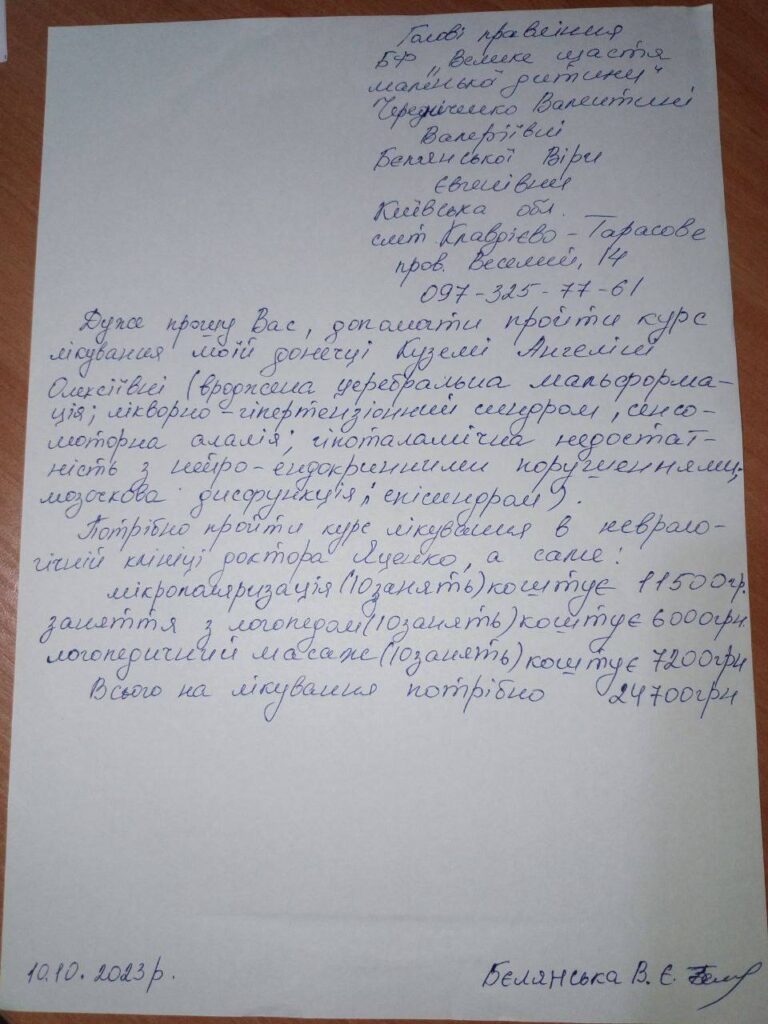 Голові правління
БФ „Велике щастя
маленької дитини"
Чередніченко Валентині
Валеріївні
Бєлянської Віри
Євгенівни
Київська обл.
смт Клавдієво-Тарасове
пров. Веселий, 14
097-325-77-61
Дуже прошу Вас, допомогти пройти курс
лікування моїй донечці Куземі Ангеліні
Олексіївні (вроджена церебральна мальформа-
ція; лікворно-гіпертензіонний синдром, сенсо-
моторна алалія; гіпоталамічна недостат-
ність з нейро-ендокринними порушеннями;
мозочкова дисфункція; епісиндром).
Потрібно пройти курс лікування в невроло-
гічній клініці доктора Яценко, а саме:
мікрополяризація (10 занять) коштує 11500гр.
заняття з логопедом (10 занять) коштує 6000грн
логопедичний масаж (10 занять) коштує 7200грн
Всього на лікування потрібно 24700грн
10.10.2023р.
Бєлянська В.Є.